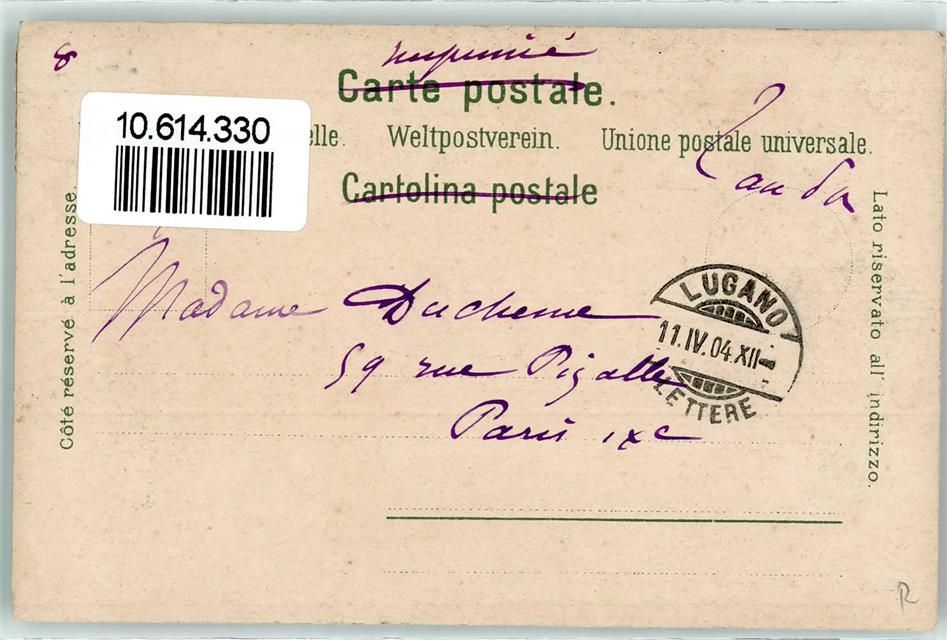 8
imprimé
Carte postale.
10.614.330
elle. Weltpostverein. Unione postale universale.
Cartolina postale
Côté réservé à l'adresse.
Lato riservato all' indirizzo.
Madame Duchesne
59 rue Pigalle
Paris IXe
LUGANO
11.IV.04.XII-
LETTERE
R